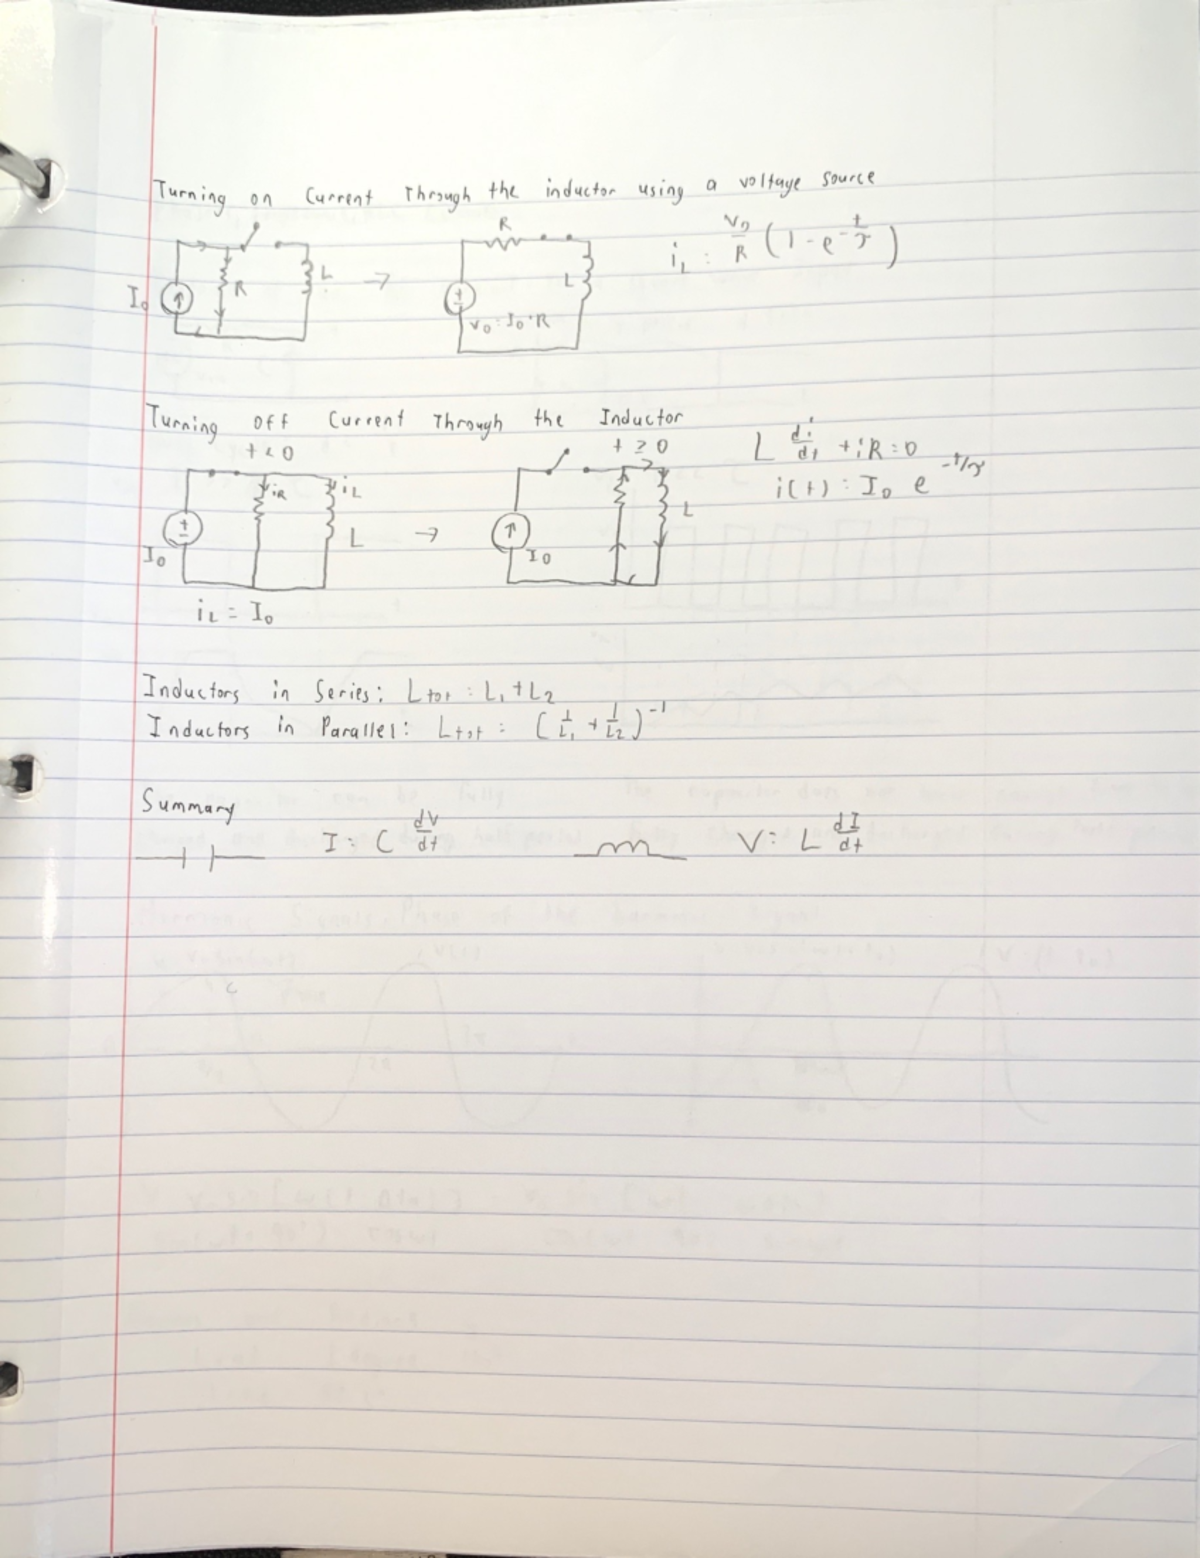 Turning on Current Through the inductor using a voltage source
R
I₀ R L → L
V₀ = I₀·R
i_L = V₀/R (1 - e^(-t/τ))
Turning off Current Through the Inductor
t < 0
t ≥ 0
L di/dt + iR = 0
i(t) = I₀ e^(-t/τ)
iR iL
I₀ L → I₀ L
iL = I₀
Inductors in Series: Ltot = L₁ + L₂
Inductors in Parallel: Ltot = (1/L₁ + 1/L₂)⁻¹
Summary
I = C dV/dt V = L dI/dt